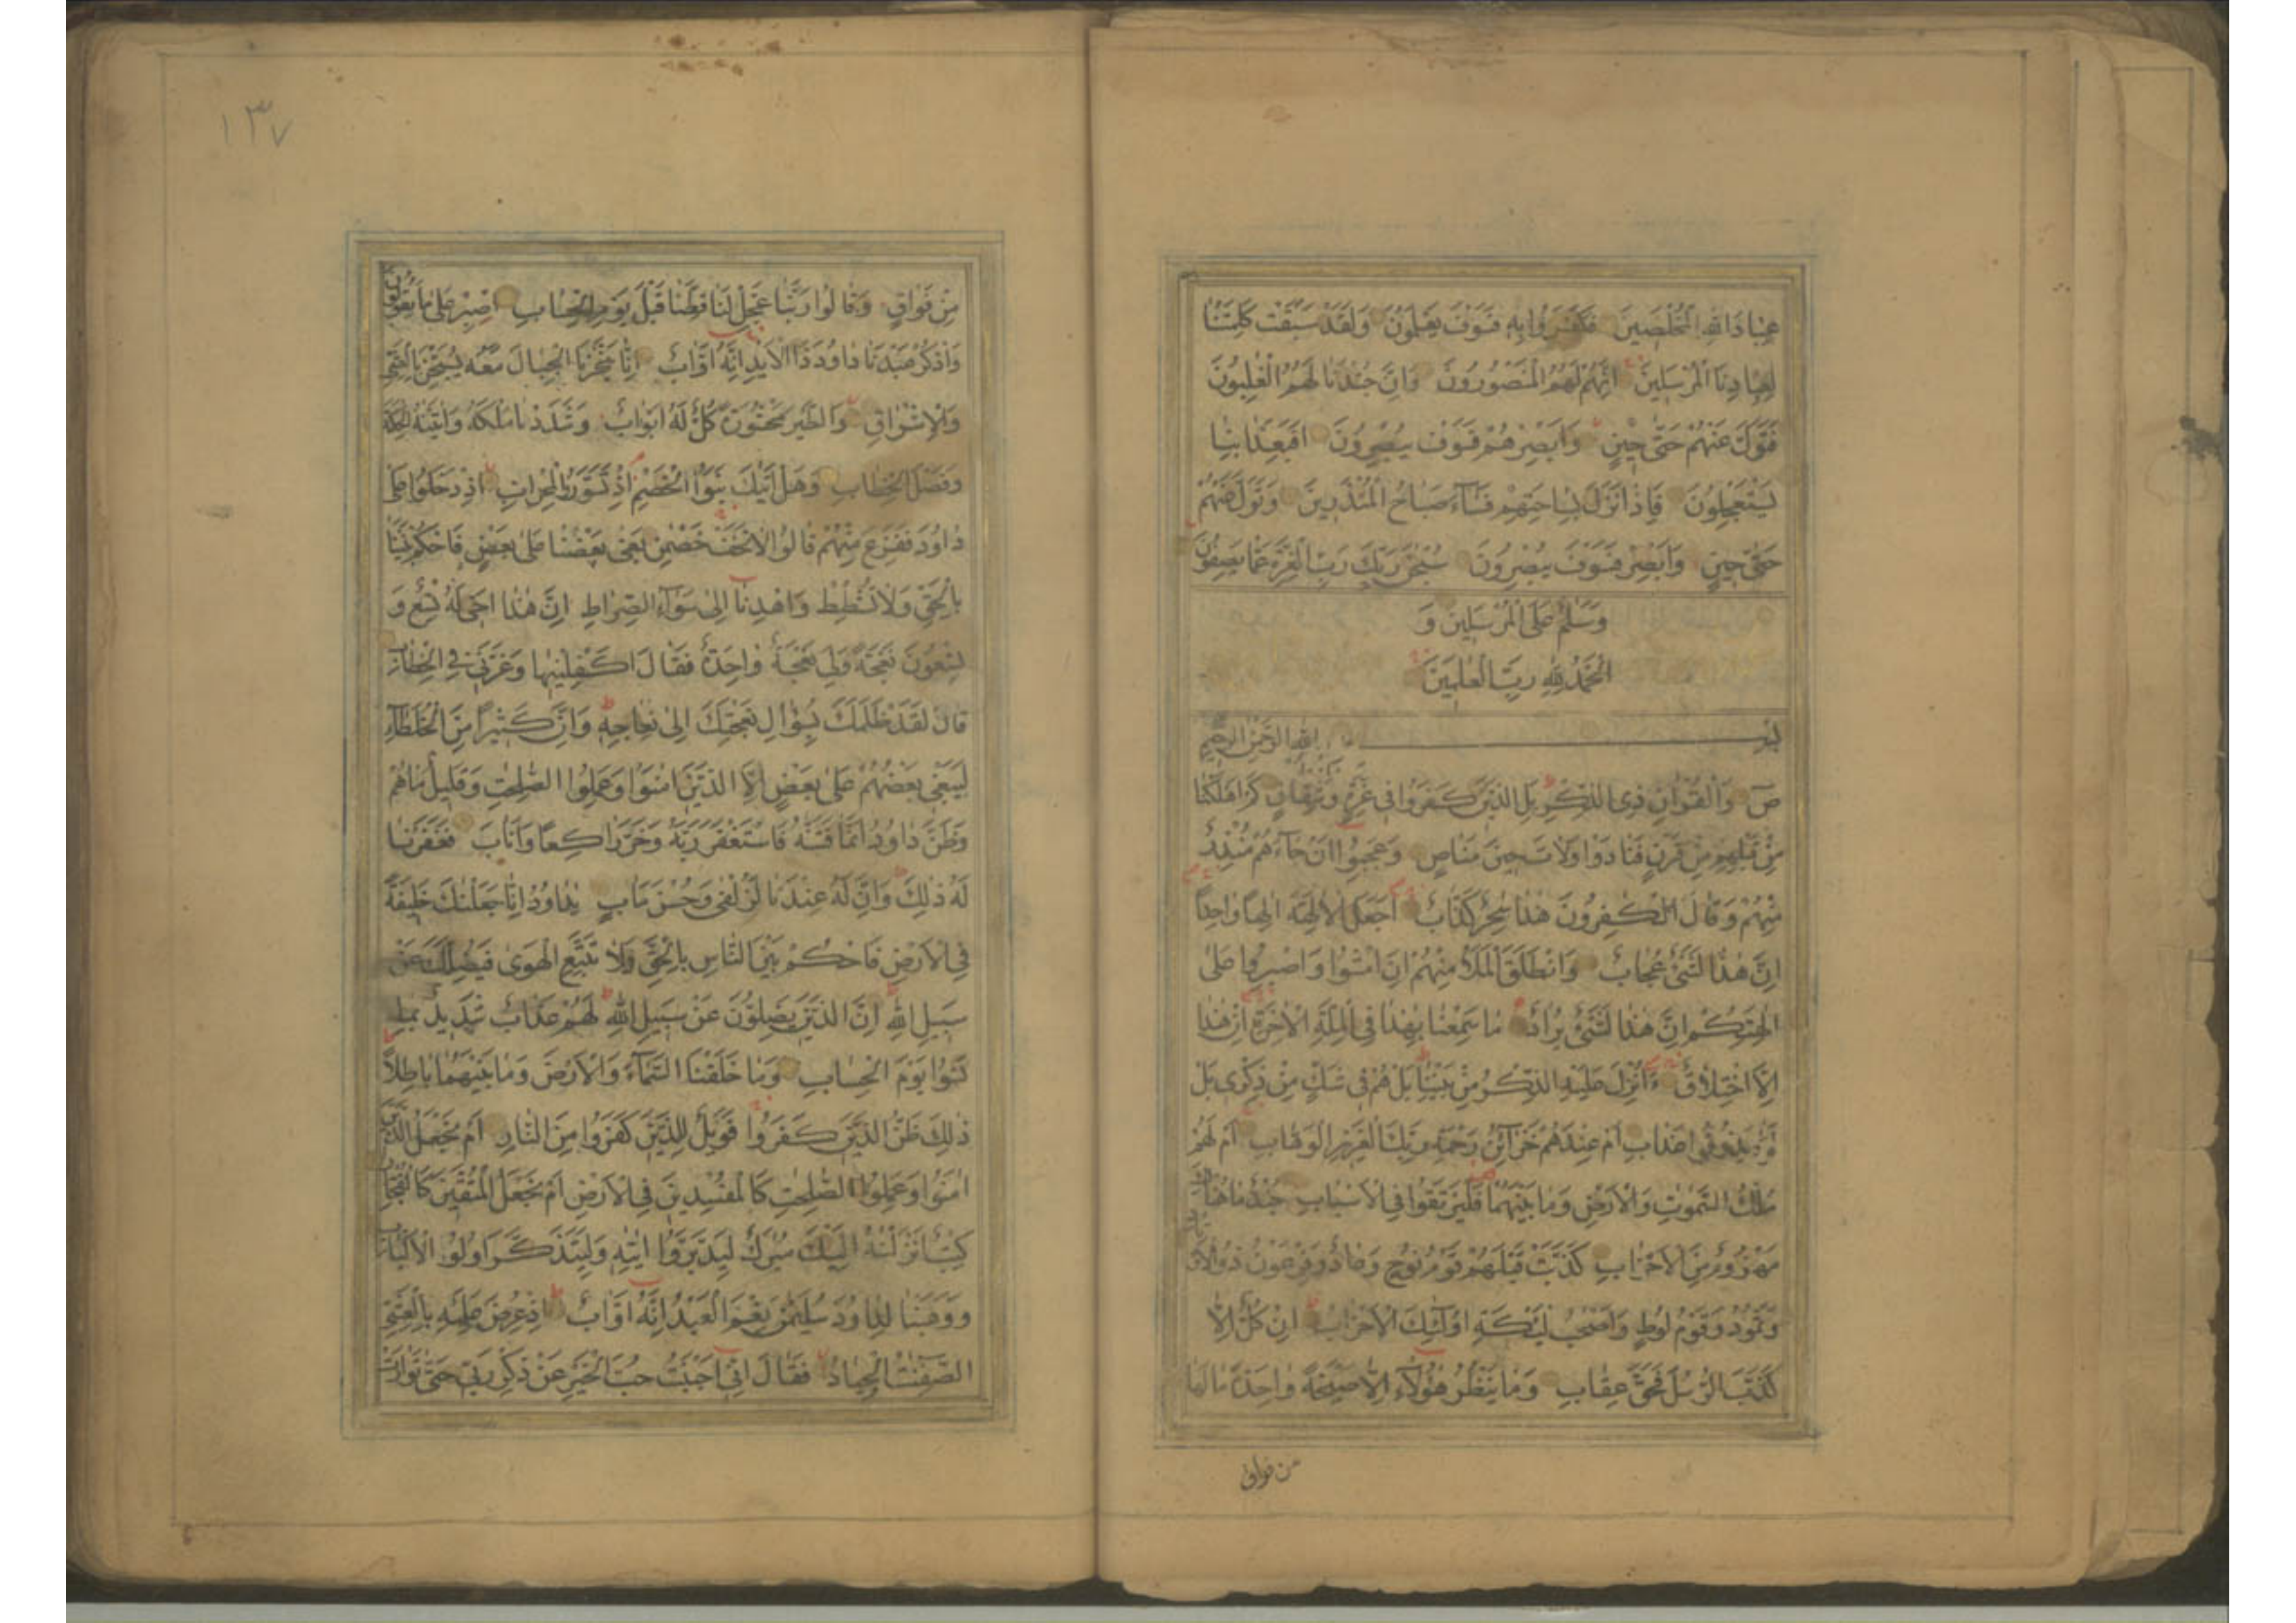 عِبَادَ اللّٰهِ الْمُخْلَصِينَ فَكَفَرُوا بِهِ فَسَوْفَ يَعْلَمُونَ وَلَقَدْ سَبَقَتْ كَلِمَتُنَا
لِعِبَادِنَا الْمُرْسَلِينَ اِنَّهُمْ لَهُمُ الْمَنْصُورُونَ وَاِنَّ جُنْدَنَا لَهُمُ الْغٰلِبُونَ
فَتَوَلَّ عَنْهُمْ حَتّٰى حِينٍ وَاَبْصِرْهُمْ فَسَوْفَ يُبْصِرُونَ اَفَبِعَذَابِنَا
يَسْتَعْجِلُونَ فَاِذَا نَزَلَ بِسَاحَتِهِمْ فَسَآءَ صَبَاحُ الْمُنْذَرِينَ وَتَوَلَّ عَنْهُمْ
حَتّٰى حِينٍ وَاَبْصِرْ فَسَوْفَ يُبْصِرُونَ سُبْحٰنَ رَبِّكَ رَبِّ الْعِزَّةِ عَمَّا يَصِفُونَ
وَسَلٰمٌ عَلَى الْمُرْسَلِينَ وَ
الْحَمْدُ لِلّٰهِ رَبِّ الْعٰلَمِينَ
بِسْمِ اللّٰهِ الرَّحْمٰنِ الرَّحِيمِ
صٓ وَالْقُرْاٰنِ ذِى الذِّكْرِ بَلِ الَّذِينَ كَفَرُوا فِى عِزَّةٍ وَشِقَاقٍ كَمْ اَهْلَكْنَا
مِنْ قَبْلِهِمْ مِنْ قَرْنٍ فَنَادَوْا وَلَاتَ حِينَ مَنَاصٍ وَعَجِبُوا اَنْ جَآءَهُمْ مُنْذِرٌ
مِنْهُمْ وَقَالَ الْكٰفِرُونَ هٰذَا سٰحِرٌ كَذَّابٌ اَجَعَلَ الْاٰلِهَةَ اِلٰهًا وَاحِدًا
اِنَّ هٰذَا لَشَىْءٌ عُجَابٌ وَانْطَلَقَ الْمَلَأُ مِنْهُمْ اَنِ امْشُوا وَاصْبِرُوا عَلٰى
اٰلِهَتِكُمْ اِنَّ هٰذَا لَشَىْءٌ يُرَادُ مَا سَمِعْنَا بِهٰذَا فِى الْمِلَّةِ الْاٰخِرَةِ اِنْ هٰذَا
اِلَّا اخْتِلَاقٌ ءَاُنْزِلَ عَلَيْهِ الذِّكْرُ مِنْ بَيْنِنَا بَلْ هُمْ فِى شَكٍّ مِنْ ذِكْرِى بَلْ
لَمَّا يَذُوقُوا عَذَابِ اَمْ عِنْدَهُمْ خَزَآئِنُ رَحْمَةِ رَبِّكَ الْعَزِيزِ الْوَهَّابِ اَمْ لَهُمْ
مُلْكُ السَّمٰوٰتِ وَالْاَرْضِ وَمَا بَيْنَهُمَا فَلْيَرْتَقُوا فِى الْاَسْبَابِ جُنْدٌ مَا هُنَالِكَ
مَهْزُومٌ مِنَ الْاَحْزَابِ كَذَّبَتْ قَبْلَهُمْ قَوْمُ نُوحٍ وَعَادٌ وَفِرْعَوْنُ ذُو الْاَوْتَادِ
وَثَمُودُ وَقَوْمُ لُوطٍ وَاَصْحٰبُ لْـَٔيْكَةِ اُولٰٓئِكَ الْاَحْزَابُ اِنْ كُلٌّ اِلَّا
كَذَّبَ الرُّسُلَ فَحَقَّ عِقَابِ وَمَا يَنْظُرُ هٰٓؤُلَآءِ اِلَّا صَيْحَةً وَاحِدَةً مَا لَهَا
من فواق
١٣٧
مِنْ فَوَاقٍ وَقَالُوا رَبَّنَا عَجِّلْ لَنَا قِطَّنَا قَبْلَ يَوْمِ الْحِسَابِ اِصْبِرْ عَلٰى مَا يَقُولُونَ
وَاذْكُرْ عَبْدَنَا دَاوُدَ ذَا الْاَيْدِ اِنَّهُ اَوَّابٌ اِنَّا سَخَّرْنَا الْجِبَالَ مَعَهُ يُسَبِّحْنَ بِالْعَشِىِّ
وَالْاِشْرَاقِ وَالطَّيْرَ مَحْشُورَةً كُلٌّ لَهُ اَوَّابٌ وَشَدَدْنَا مُلْكَهُ وَاٰتَيْنٰهُ الْحِكْمَةَ
وَفَصْلَ الْخِطَابِ وَهَلْ اَتٰيكَ نَبَؤُا الْخَصْمِ اِذْ تَسَوَّرُوا الْمِحْرَابَ اِذْ دَخَلُوا عَلٰى
دَاوُدَ فَفَزِعَ مِنْهُمْ قَالُوا لَا تَخَفْ خَصْمٰنِ بَغٰى بَعْضُنَا عَلٰى بَعْضٍ فَاحْكُمْ بَيْنَنَا
بِالْحَقِّ وَلَا تُشْطِطْ وَاهْدِنَا اِلٰى سَوَآءِ الصِّرَاطِ اِنَّ هٰذَا اَخِى لَهُ تِسْعٌ وَ
تِسْعُونَ نَعْجَةً وَلِىَ نَعْجَةٌ وَاحِدَةٌ فَقَالَ اَكْفِلْنِيهَا وَعَزَّنِى فِى الْخِطَابِ
قَالَ لَقَدْ ظَلَمَكَ بِسُؤَالِ نَعْجَتِكَ اِلٰى نِعَاجِهِ وَاِنَّ كَثِيرًا مِنَ الْخُلَطَآءِ
لَيَبْغِى بَعْضُهُمْ عَلٰى بَعْضٍ اِلَّا الَّذِينَ اٰمَنُوا وَعَمِلُوا الصّٰلِحٰتِ وَقَلِيلٌ مَا هُمْ
وَظَنَّ دَاوُدُ اَنَّمَا فَتَنّٰهُ فَاسْتَغْفَرَ رَبَّهُ وَخَرَّ رَاكِعًا وَاَنَابَ فَغَفَرْنَا
لَهُ ذٰلِكَ وَاِنَّ لَهُ عِنْدَنَا لَزُلْفٰى وَحُسْنَ مَاٰبٍ يٰدَاوُدُ اِنَّا جَعَلْنٰكَ خَلِيفَةً
فِى الْاَرْضِ فَاحْكُمْ بَيْنَ النَّاسِ بِالْحَقِّ وَلَا تَتَّبِعِ الْهَوٰى فَيُضِلَّكَ عَنْ
سَبِيلِ اللّٰهِ اِنَّ الَّذِينَ يَضِلُّونَ عَنْ سَبِيلِ اللّٰهِ لَهُمْ عَذَابٌ شَدِيدٌ بِمَا
نَسُوا يَوْمَ الْحِسَابِ وَمَا خَلَقْنَا السَّمَآءَ وَالْاَرْضَ وَمَا بَيْنَهُمَا بَاطِلًا
ذٰلِكَ ظَنُّ الَّذِينَ كَفَرُوا فَوَيْلٌ لِلَّذِينَ كَفَرُوا مِنَ النَّارِ اَمْ نَجْعَلُ الَّذِينَ
اٰمَنُوا وَعَمِلُوا الصّٰلِحٰتِ كَالْمُفْسِدِينَ فِى الْاَرْضِ اَمْ نَجْعَلُ الْمُتَّقِينَ كَالْفُجَّارِ
كِتٰبٌ اَنْزَلْنٰهُ اِلَيْكَ مُبٰرَكٌ لِيَدَّبَّرُوا اٰيٰتِهِ وَلِيَتَذَكَّرَ اُولُوا الْاَلْبَابِ
وَوَهَبْنَا لِدَاوُدَ سُلَيْمٰنَ نِعْمَ الْعَبْدُ اِنَّهُ اَوَّابٌ اِذْ عُرِضَ عَلَيْهِ بِالْعَشِىِّ
الصّٰفِنٰتُ الْجِيَادُ فَقَالَ اِنِّى اَحْبَبْتُ حُبَّ الْخَيْرِ عَنْ ذِكْرِ رَبِّى حَتّٰى تَوَارَتْ